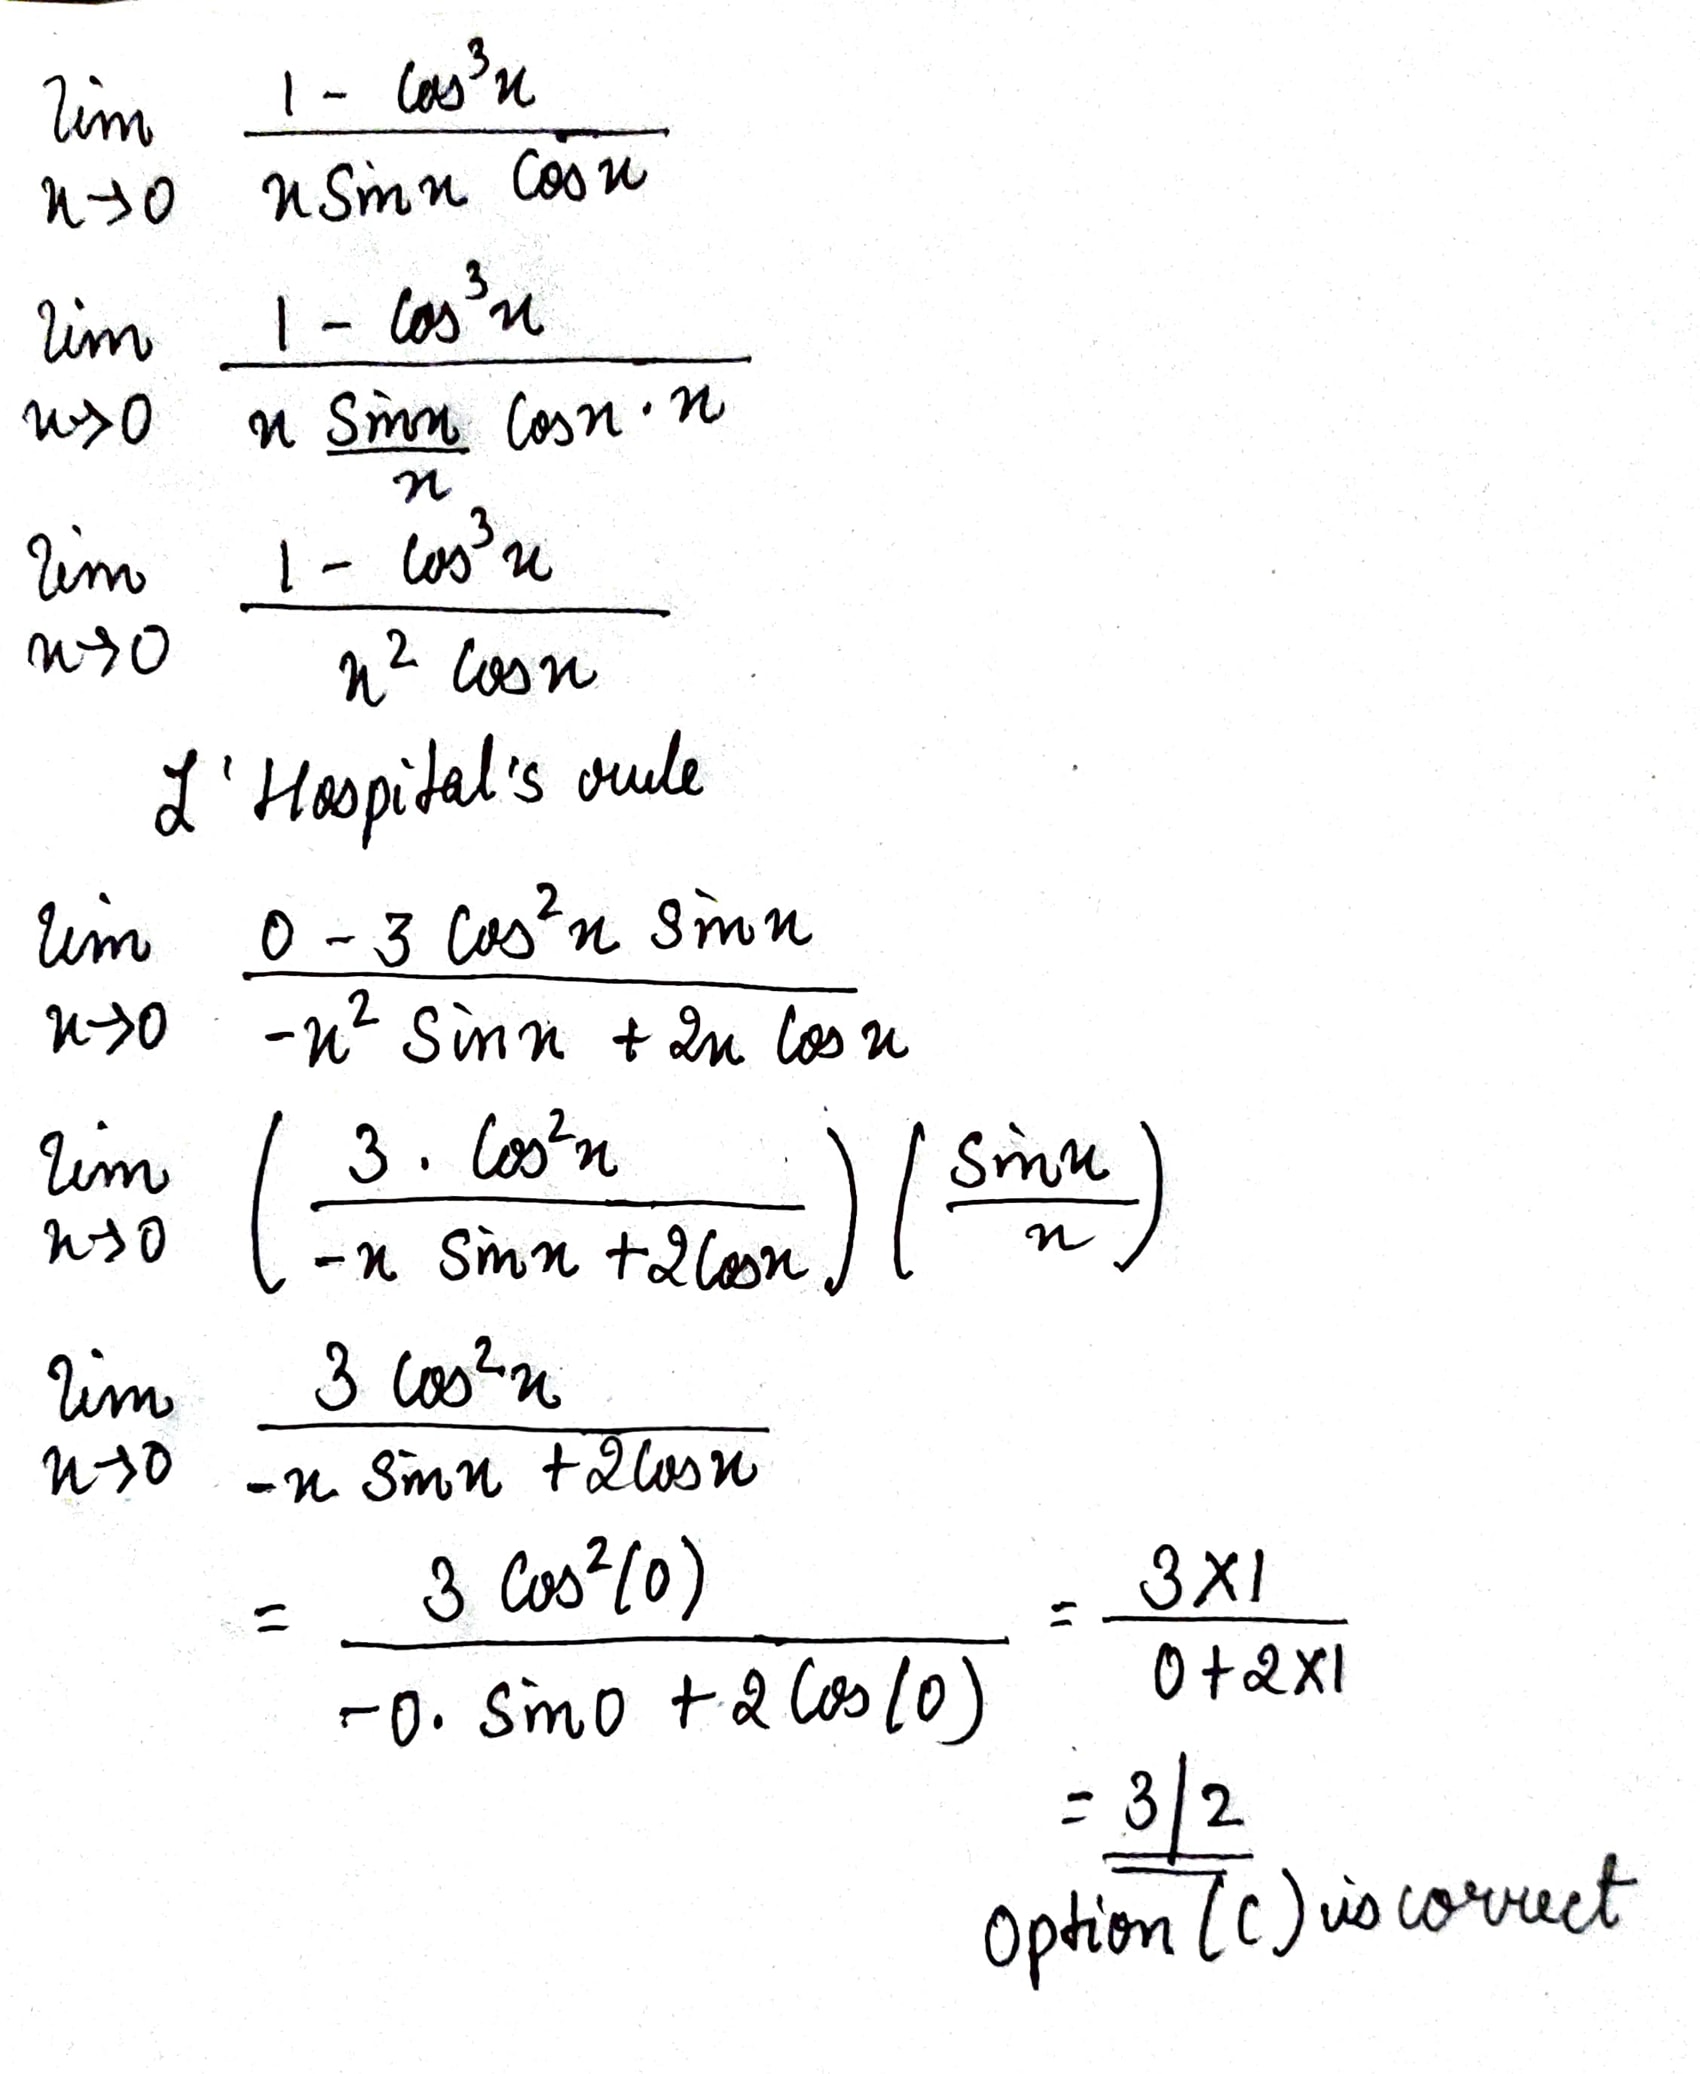 lim x→0 (1 - Cos³x) / (x Sinx Cosx)
lim x→0 (1 - Cos³x) / (x (Sinx / x) Cosx · x)
lim x→0 (1 - Cos³x) / (x² Cosx)
L'Hospital's rule
lim x→0 (0 - 3 Cos²x Sinx) / (-x² Sinx + 2x Cosx)
lim x→0 ((3 · Cos²x) / (-x Sinx + 2Cosx)) (Sinx / x)
lim x→0 (3 Cos²x) / (-x Sinx + 2Cosx)
= (3 Cos²(0)) / (-0. Sin0 + 2 Cos(0)) = (3×1) / (0+2×1)
= 3/2
Option (C) is correct